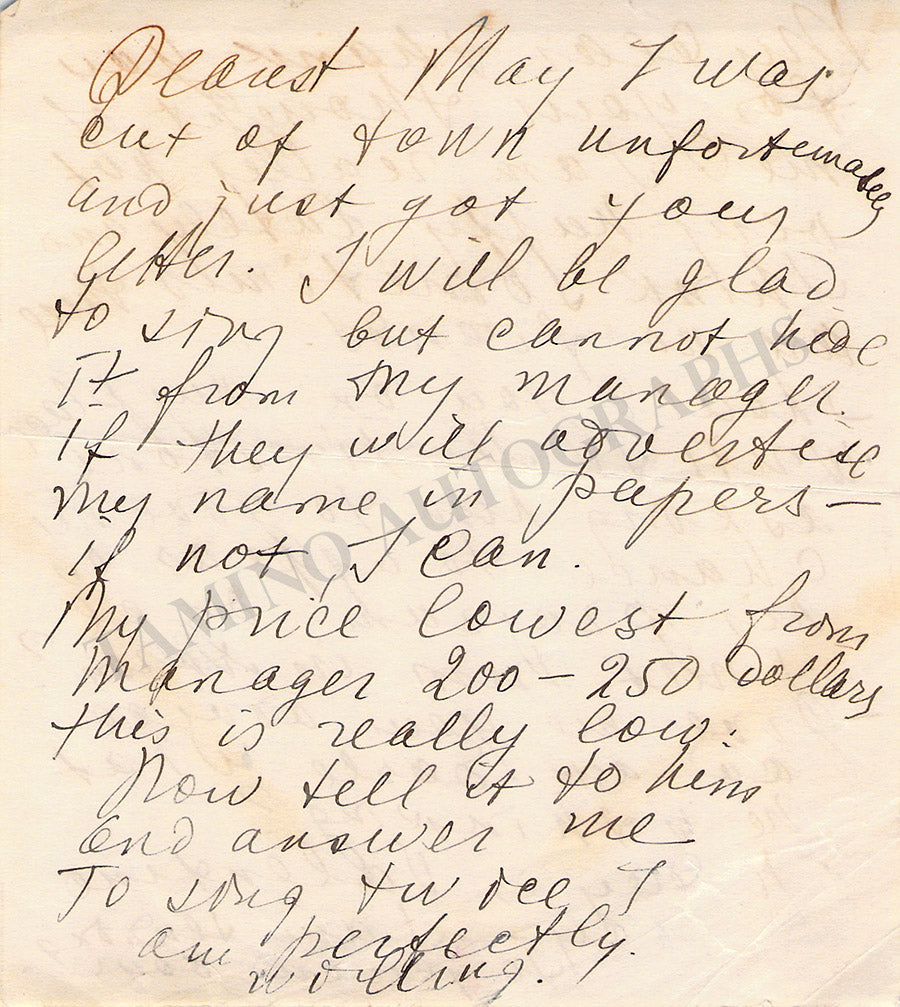 Dearest May I was
out of town unfortunately
and just got your
letter. I will be glad
to sing but cannot hide
it from my manager
if they will advertise
my name in papers —
if not, I can.
My price lowest from
manager 200 – 250 dollars
this is really low.
Now tell it to him
and answer me
To sing twice I
am perfectly
willing.
TAMINO AUTOGRAPHS